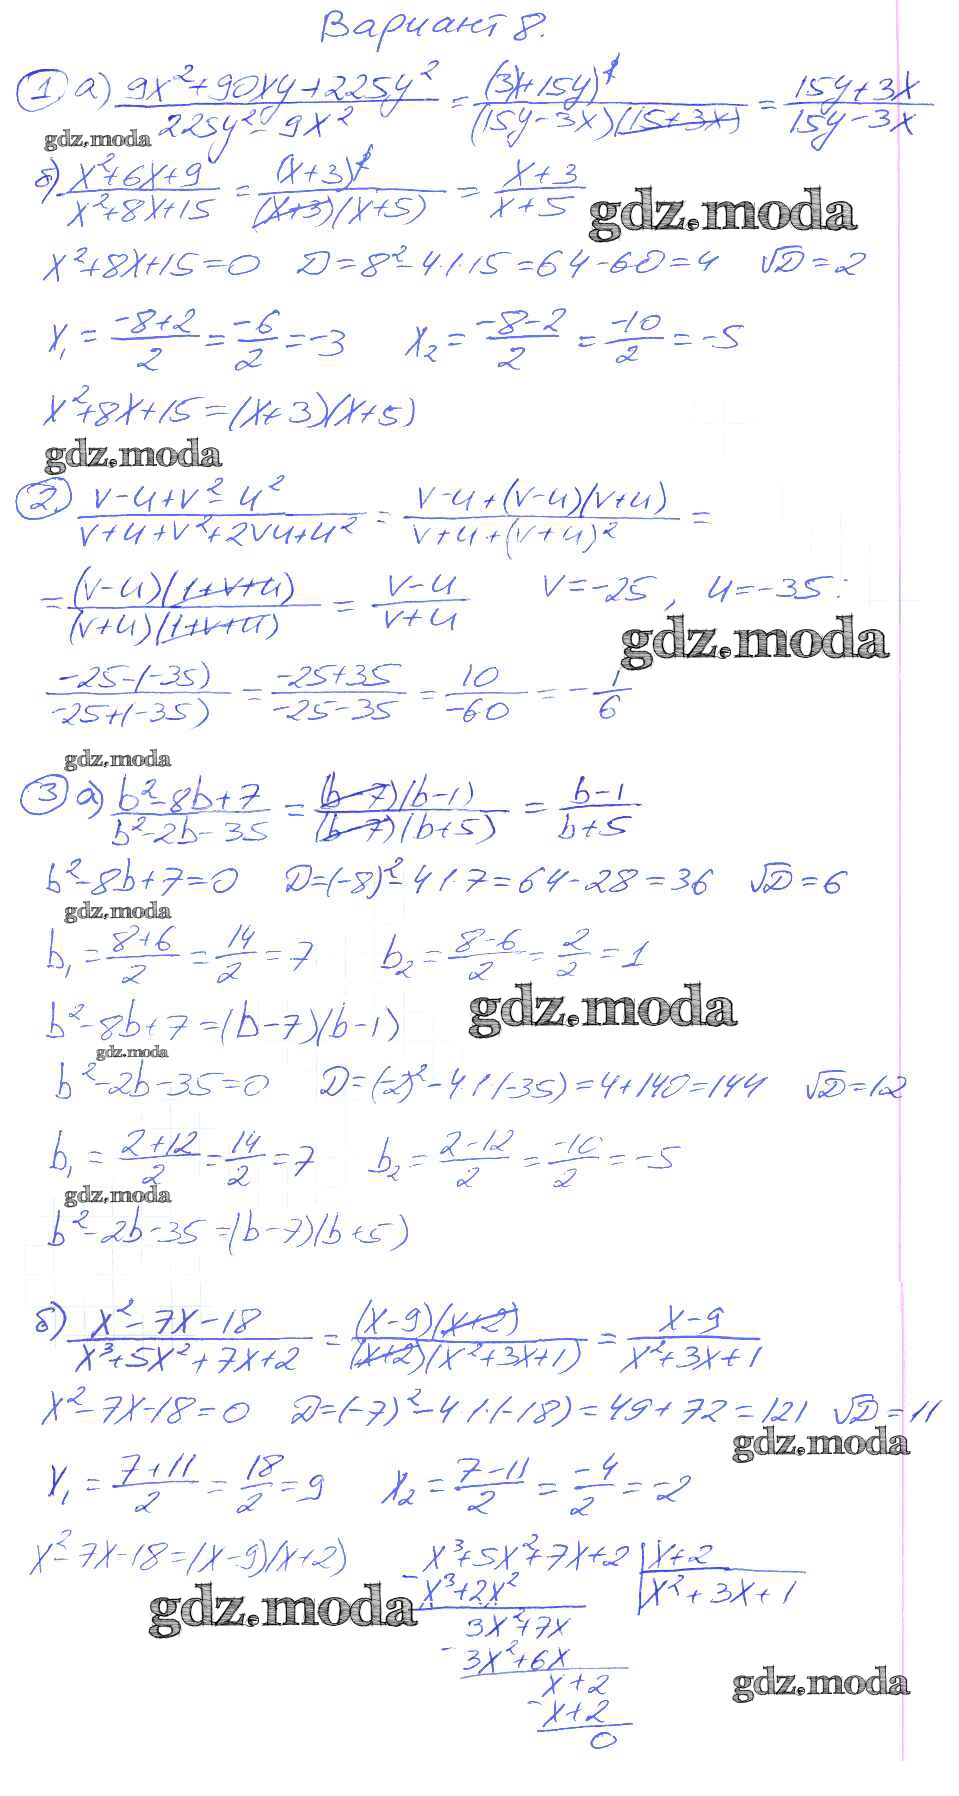 Вариант 8.
① а) (9x²+90xy+225y²)/(225y²-9x²) = (3x+15y)²/((15y-3x)(15+3x)) = (15y+3x)/(15y-3x)
gdz.moda
б) (x²+6x+9)/(x²+8x+15) = (x+3)²/((x+3)(x+5)) = (x+3)/(x+5)
gdz.moda
x²+8x+15=0 D=8²-4·1·15=64-60=4 √D=2
x₁=(-8+2)/2=-6/2=-3 x₂=(-8-2)/2=-10/2=-5
x²+8x+15=(x+3)(x+5)
gdz.moda
② (v-u+v²-u²)/(v+u+v²+2vu+u²) = (v-u+(v-u)(v+u))/(v+u+(v+u)²) =
= ((v-u)(1+v+u))/((v+u)(1+v+u)) = (v-u)/(v+u) v=-25, u=-35:
gdz.moda
(-25-(-35))/(-25+(-35)) = (-25+35)/(-25-35) = 10/-60 = -1/6
gdz.moda
③ а) (b²-8b+7)/(b²-2b-35) = ((b-7)(b-1))/((b-7)(b+5)) = (b-1)/(b+5)
b²-8b+7=0 D=(-8)²-4·1·7=64-28=36 √D=6
gdz.moda
b₁=(8+6)/2=14/2=7 b₂=(8-6)/2=2/2=1
gdz.moda
b²-8b+7=(b-7)(b-1)
gdz.moda
b²-2b-35=0 D=(-2)²-4·1·(-35)=4+140=144 √D=12
b₁=(2+12)/2=14/2=7 b₂=(2-12)/2=-10/2=-5
gdz.moda
b²-2b-35=(b-7)(b+5)
б) (x²-7x-18)/(x³+5x²+7x+2) = ((x-9)(x+2))/((x+2)(x²+3x+1)) = (x-9)/(x²+3x+1)
x²-7x-18=0 D=(-7)²-4·1·(-18)=49+72=121 √D=11
gdz.moda
x₁=(7+11)/2=18/2=9 x₂=(7-11)/2=-4/2=-2
x²-7x-18=(x-9)(x+2) x³+5x²+7x+2 | x+2
-x³+2x² | x²+3x+1
gdz.moda
3x²+7x
-3x²+6x
x+2
gdz.moda
-x+2
0